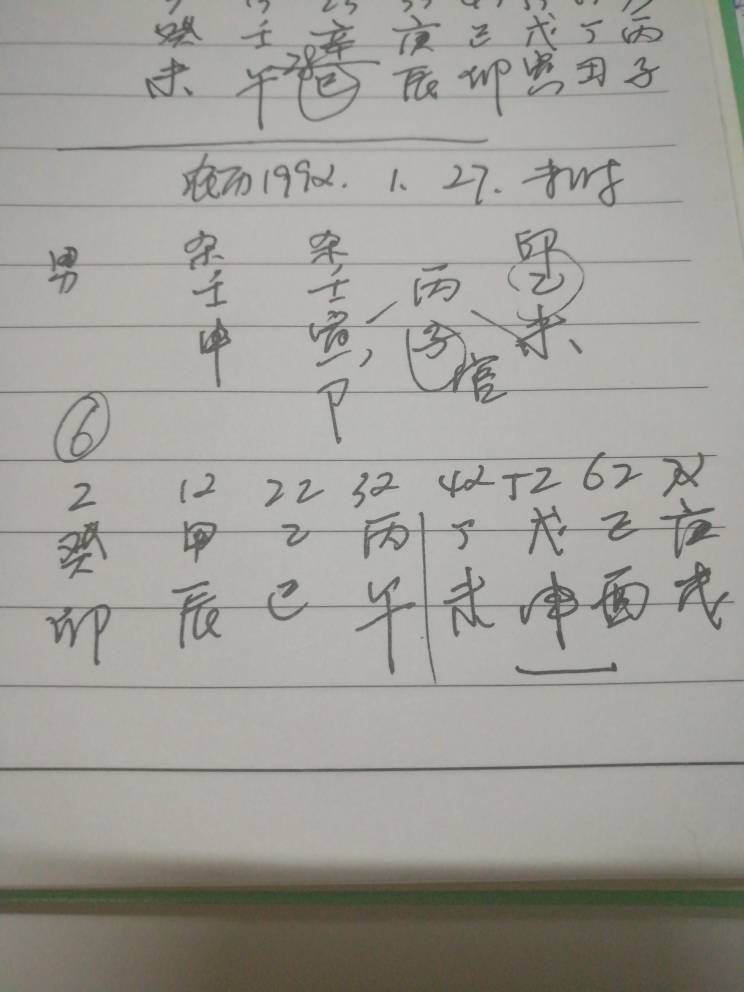 癸 壬 辛 庚 己 戊 丁 丙
未 午 28 巳 辰 卯 寅 丑 子
农历1992. 1. 27. 未时
男 杀 杀 印
壬 壬 丙 乙
申 寅 子 未
卩 官
⑥
2 12 22 32 42 52 62 72
癸 甲 乙 丙 丁 戊 己 庚
卯 辰 巳 午 未 申 酉 戌